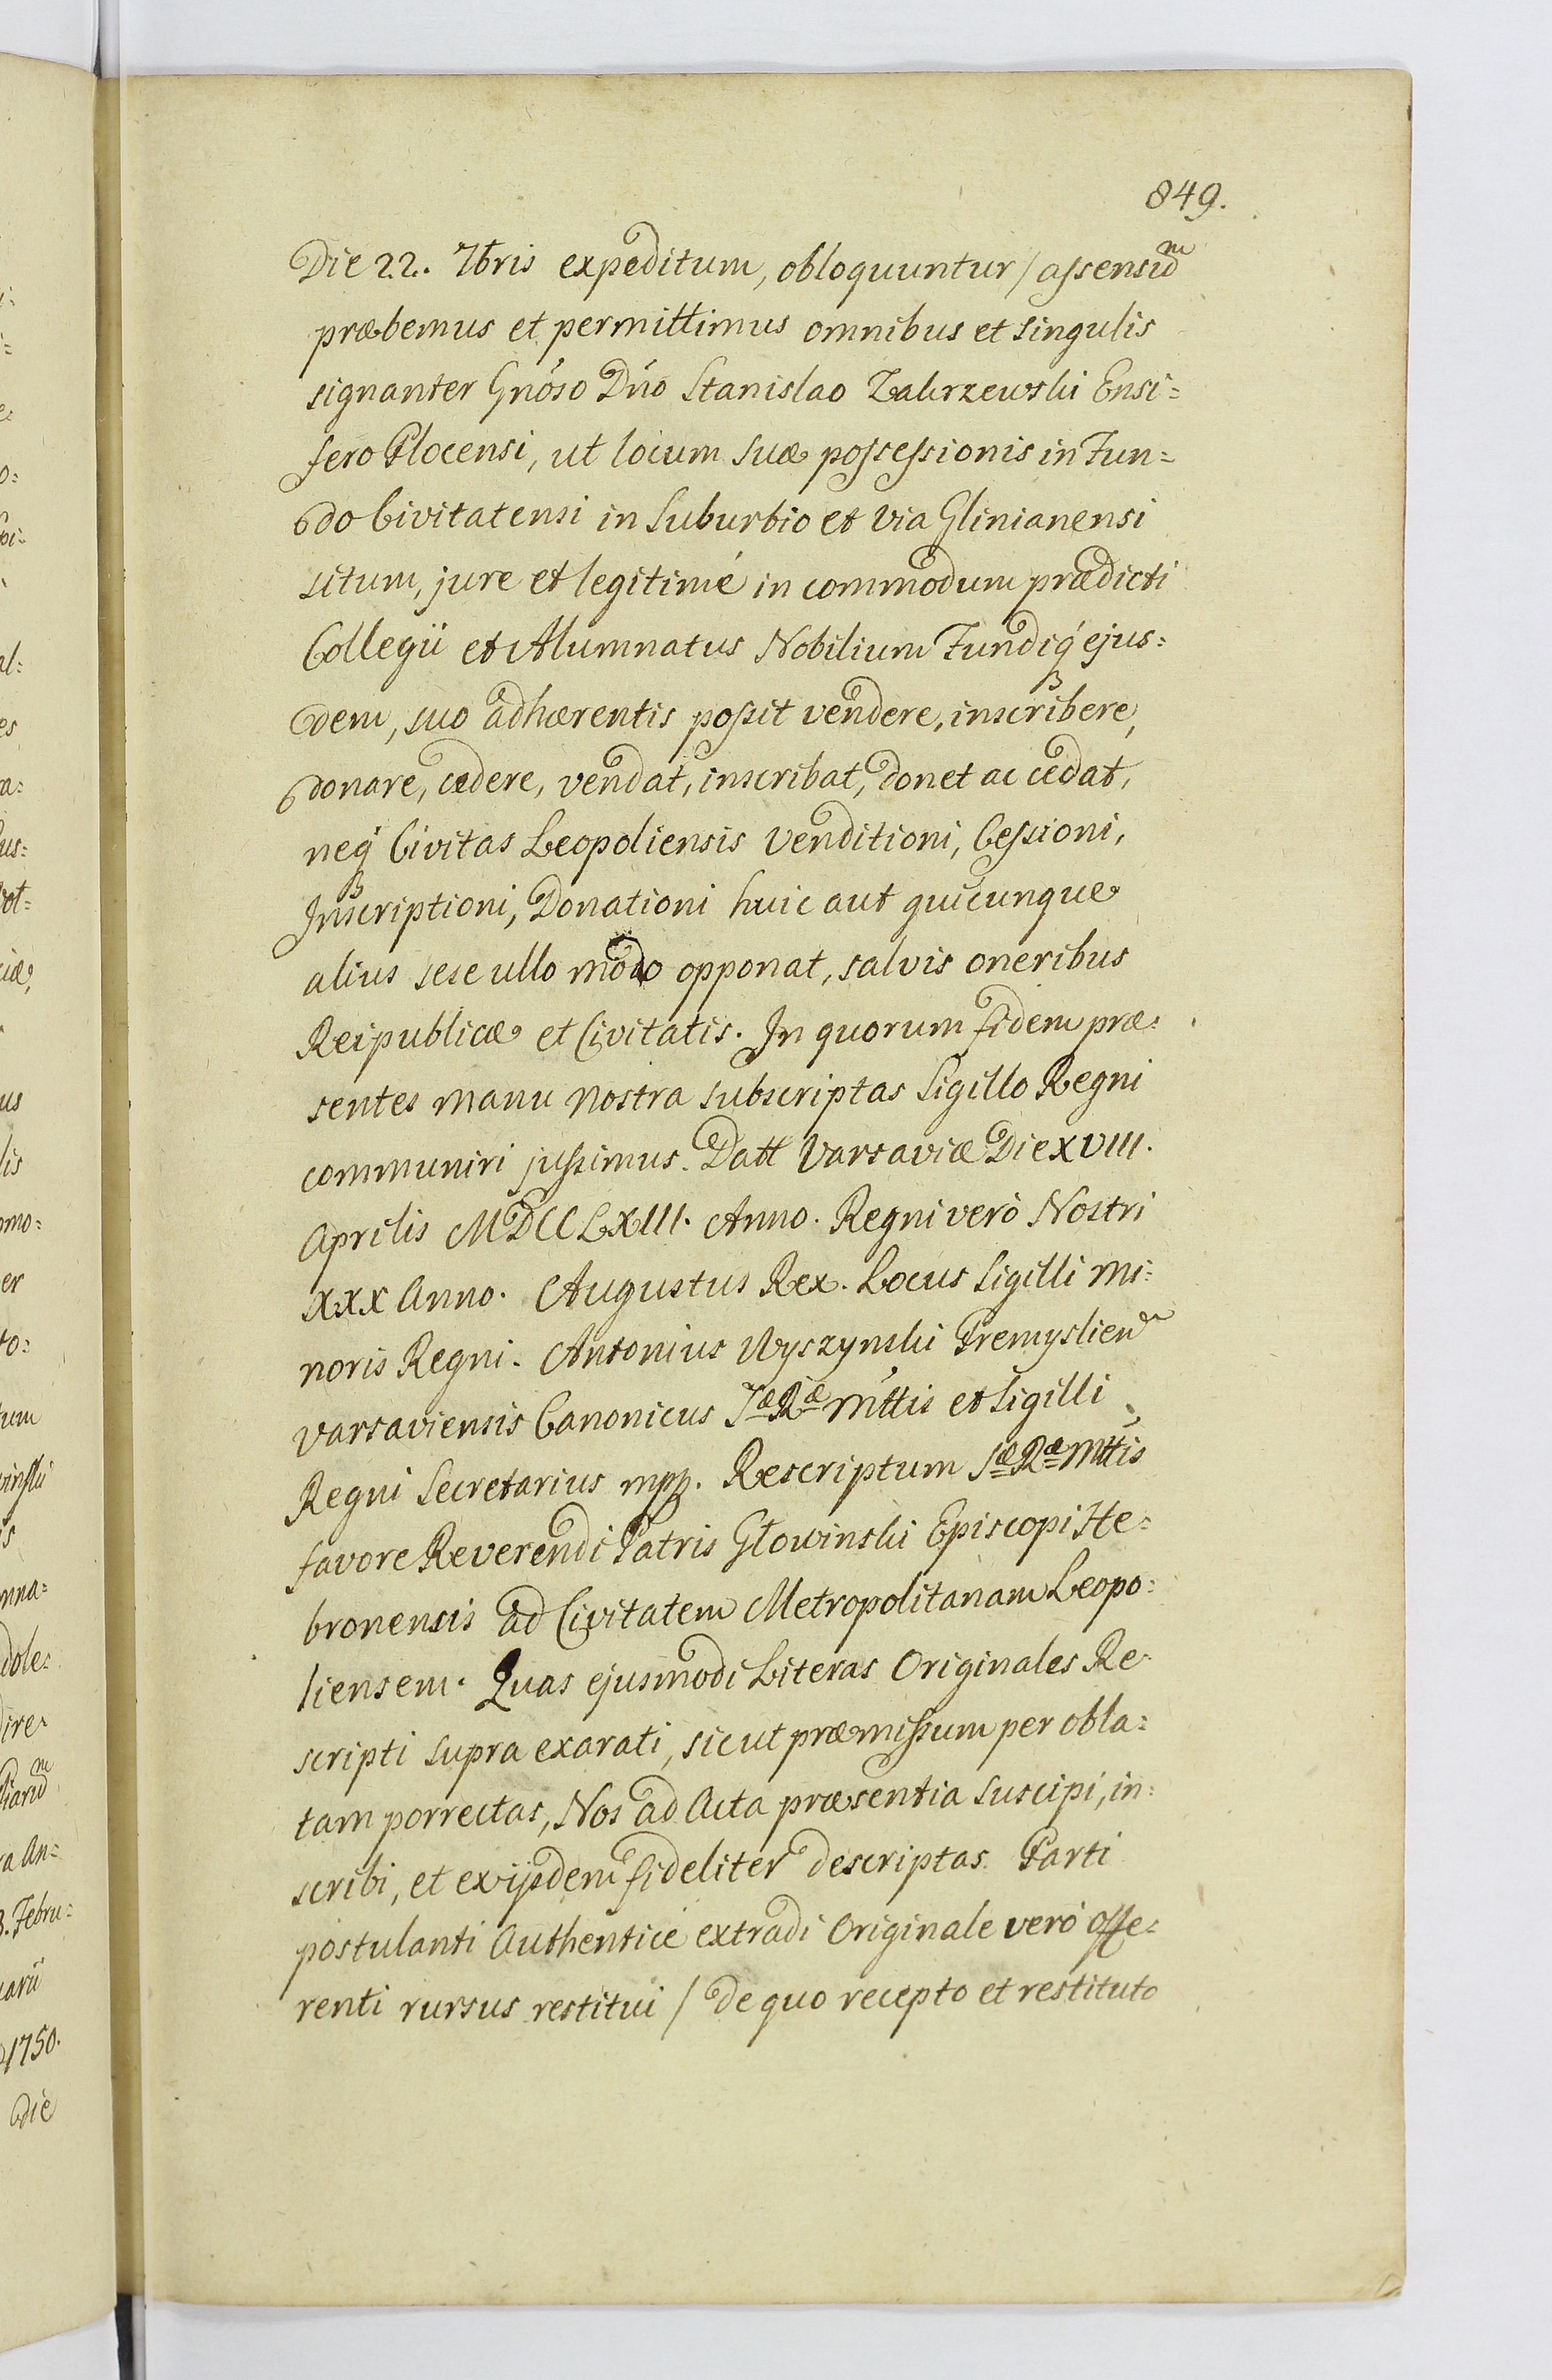 849.
Die 22. 7bris expeditum, obloquuntur / assensum
præbemus et permittimus omnibus et singulis
signanter Gnóso Dńo Stanislao Zakrzewski Ensi=
fero Plocensi, ut locum suæ possessionis in Fun=
do Civitatensi in Suburbio et via Glinianensi
situm, jure et legitimé in commodum prædicti
Collegii et Alumnatus Nobilium Fundiq́ ejus=
dem, suo adhærentis possit vendere, inscribere,
donare, cedere, vendat, inscribat, donet ac cedat,
neq́ Civitas Leopoliensis Venditioni, Cessioni,
Inscriptioni, Donationi huic aut quicunque
alius sese ullo modo opponat, salvis oneribus
Reipublicæ et Civitatis. In quorum fidem præ=
sentes manu nostra subscriptas Sigillo Regni
communiri jussimus. Datt Varsaviæ Die XVIII.
Aprilis MDCCLXIII. Anno. Regni verò Nostri
XXX Anno. Augustus Rex. Locus Sigilli Mi=
noris Regni. Antonius Wyszynski Premyslien
Varsaviensis Canonicus Sæ Ræ Mttis et Sigilli
Regni Secretarius mpp. Rescriptum Sæ Ræ Mttis
favore Reverendi Patris Głowinski Episcopi He=
bronensis ad Civitatem Metropolitanam Leopo=
liensem. Quas ejusmodi Literas Originales Re=
scripti supra exarati, sicut præmissum per obla=
tam porrectas, Nos ad Acta præsentia suscipi, in=
scribi, et ex ijsdem fideliter descriptas Parti
postulanti Authenticé extradi Originale veró offe=
renti rursus restitui / de quo recepto et restituto